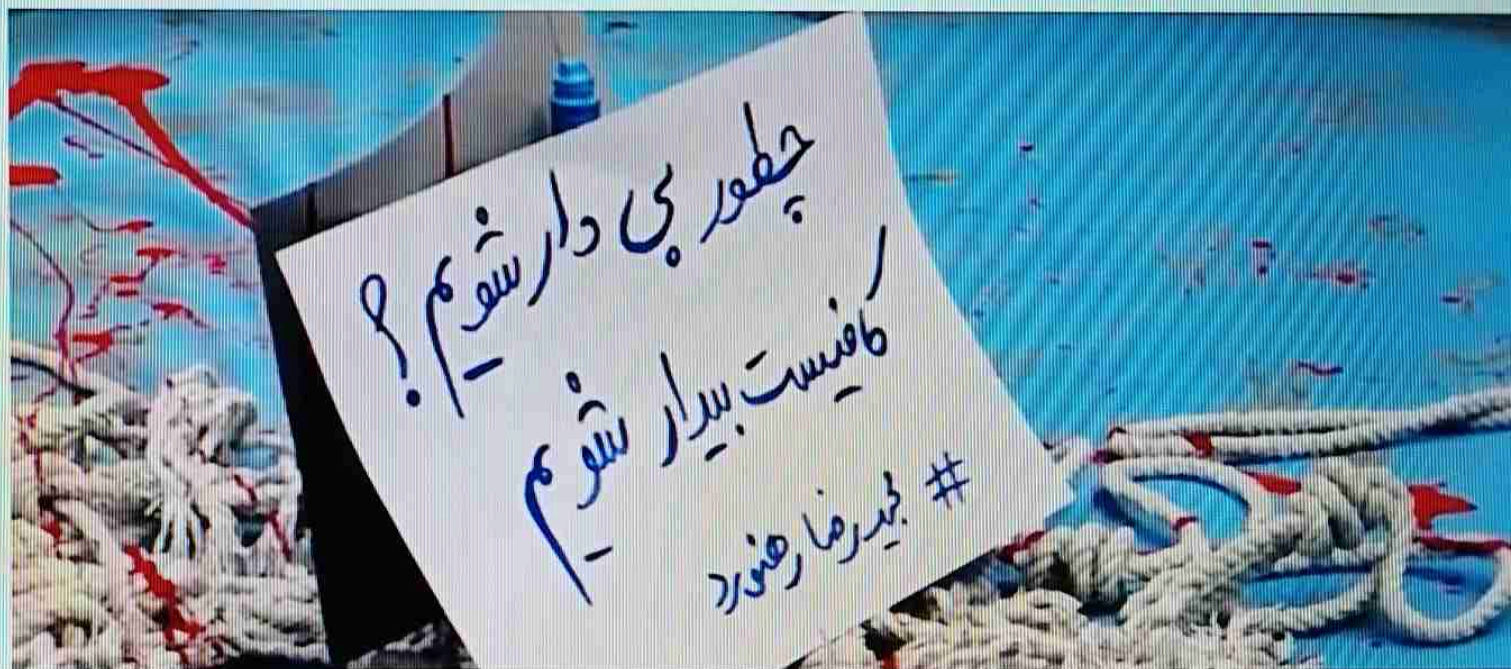 چطور بی دار شویم؟
کافیست بیدار شویم
# مجیدرضا رهنورد